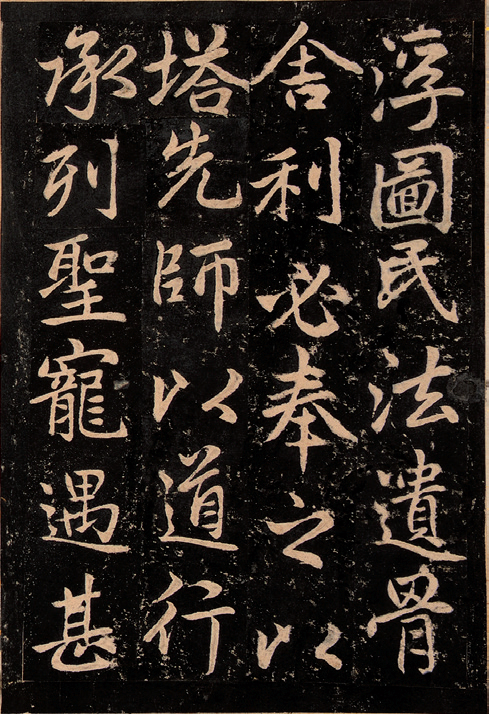 浮圖民法遺骨
舍利必奉之以
塔先師以道行
承列聖寵遇甚